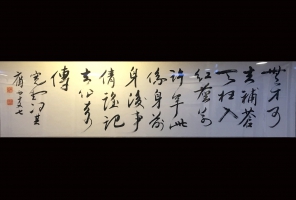 無才可
去補蒼
天枉入
紅塵若
許年此
係身前
身後事
倩誰記
去作奇
傳
寬堂馮其
庸